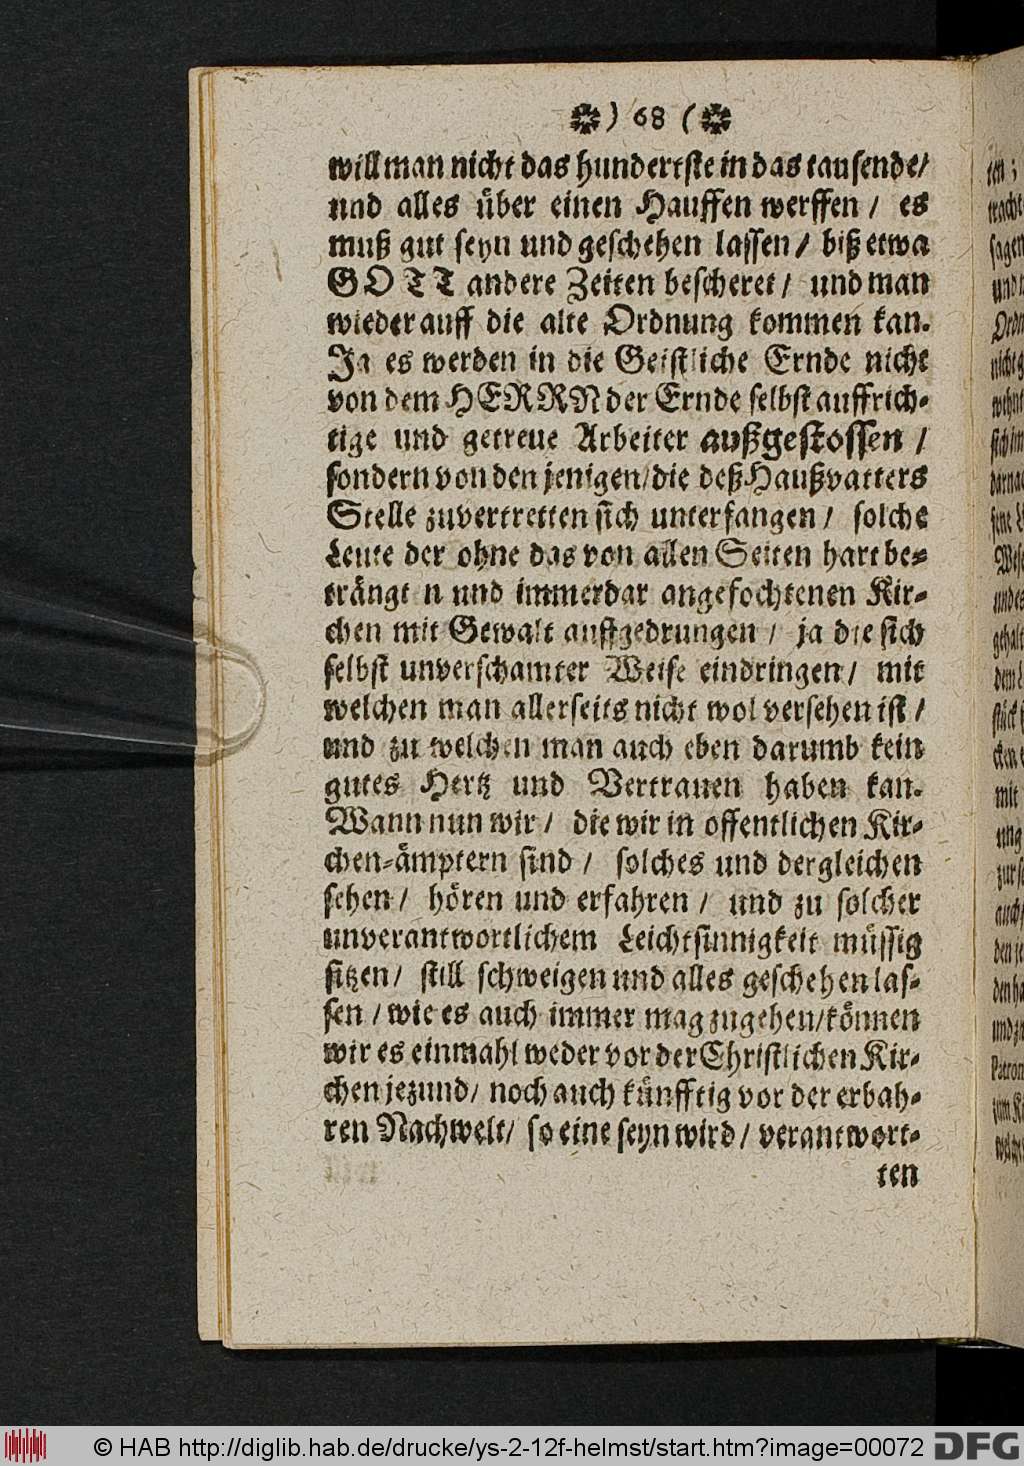 ) 68 (
will man nicht das hundertste in das tausende/
und alles über einen Hauffen werffen / es
muß gut seyn und geschehen lassen / biß etwa
GOTT andere Zeiten bescheret / und man
wieder auff die alte Ordnung kommen kan.
Ja es werden in die Geistliche Ernde nicht
von dem HERRN der Ernde selbst auffrich-
tige und getreue Arbeiter außgestossen /
sondern von den jenigen/die deß Haußvatters
Stelle zuvertretten sich unterfangen / solche
Leute der ohne das von allen Seiten hart be-
trängt n und immerdar angefochtenen Kir-
chen mit Gewalt auffgedrungen / ja die sich
selbst unverschamter Weise eindringen / mit
welchen man allerseits nicht wol versehen ist /
und zu welchen man auch eben darumb kein
gutes Hertz und Vertrauen haben kan.
Wann nun wir / die wir in offentlichen Kir-
chen-ämptern sind / solches und dergleichen
sehen / hören und erfahren / und zu solcher
unverantwortlichem Leichtsinnigkeit müssig
sitzen / still schweigen und alles geschehen las-
sen / wie es auch immer mag zugehen/können
wir es einmahl weder vor der Christlichen Kir-
chen jezund / noch auch künfftig vor der erbah-
ren Nachwelt/ so eine seyn wird / verantwort-
ten
© HAB http://diglib.hab.de/drucke/ys-2-12f-helmst/start.htm?image=00072
DFG